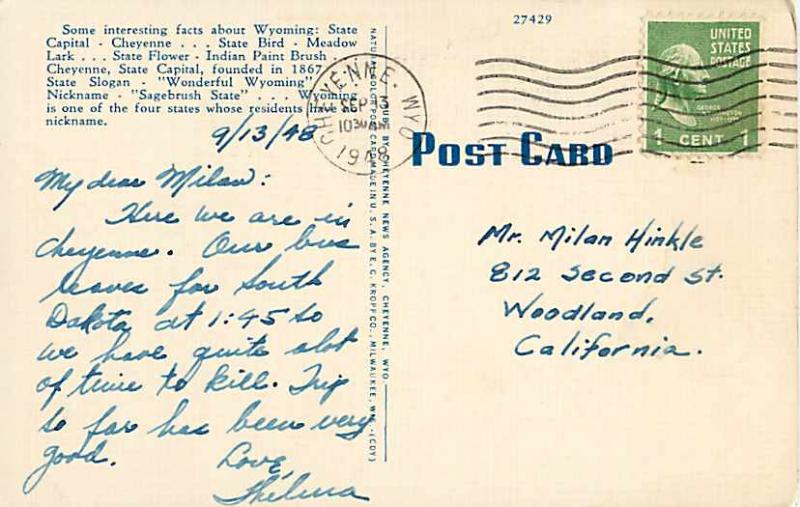 Some interesting facts about Wyoming: State
Capital - Cheyenne . . . State Bird - Meadow
Lark . . . State Flower - Indian Paint Brush .
Cheyenne, State Capital, founded in 1867
State Slogan - "Wonderful Wyoming"
Nickname - "Sagebrush State" . . . Wyoming
is one of the four states whose residents have no
nickname.
9/13/48
My dear Milan:
Here we are in
Cheyenne. Our bus
leaves for South
Dakota at 1:45 so
we have quite alot
of time to kill. Trip
so far has been very
good.
Love,
Thelma
NATURAL COLOR POST CARD MADE IN U. S. A. BY E. C. KROPP CO., MILWAUKEE, WIS. (CDY)
PUB. BY CHEYENNE NEWS AGENCY, CHEYENNE, WYO.
CHEYENNE. WYO
SEP 13
10 30 AM
1948
27429
UNITED
STATES
POSTAGE
GEORGE
WASHINGTON
1 CENT 1
POST CARD
Mr. Milan Hinkle
812 Second St.
Woodland,
California.